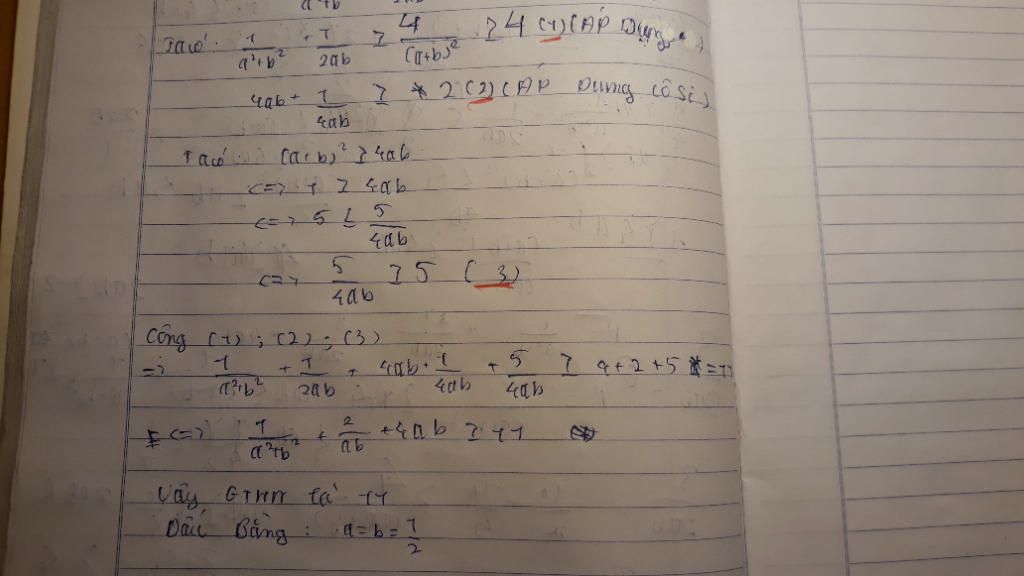 a²+b² 2ab
Ta có: 1/(a²+b²) + 1/(2ab) ≥ 4/(a+b)² ≥ 4 (1) (ÁP Dụng
4ab + 1/(4ab) ≥ 2 (2) (ÁP Dụng CôSi)
Ta có: (a+b)² ≥ 4ab
<=> 1 ≥ 4ab
<=> 5 ≤ 5/(4ab)
<=> 5/(4ab) ≥ 5 (3)
Cộng (1); (2); (3)
=> 1/(a²+b²) + 1/(2ab) + 4ab + 1/(4ab) + 5/(4ab) ≥ 4+2+5 = 11
<=> 1/(a²+b²) + 2/(ab) + 4ab ≥ 11
Vậy GTNN là 11
Dấu Bằng: a=b=1/2